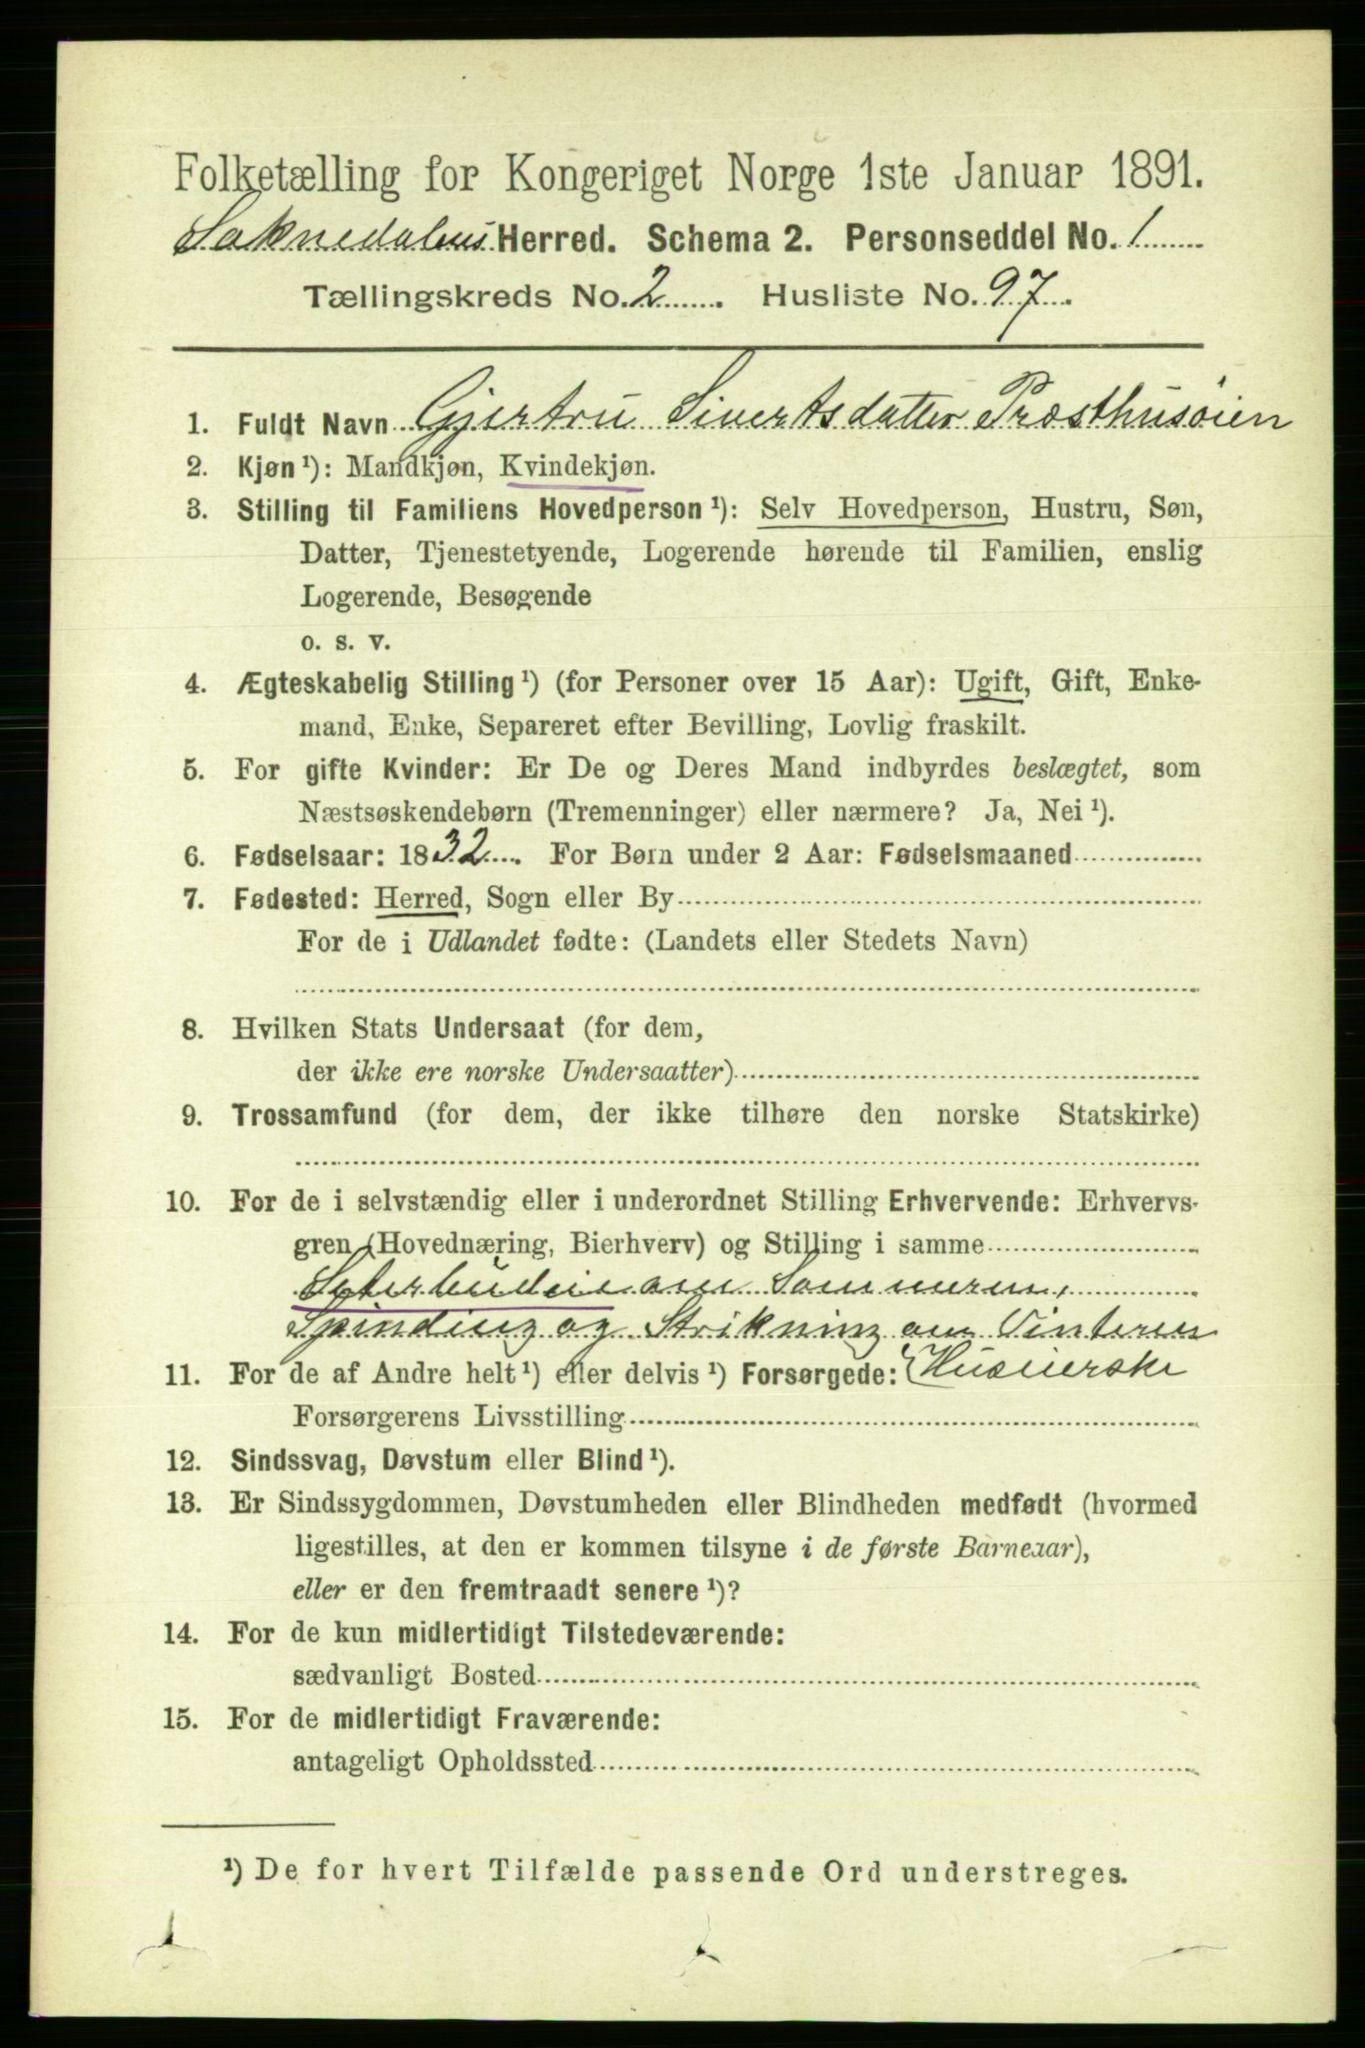 Folketælling for Kongeriget Norge 1ste Januar 1891.
Soknedalens Herred. Schema 2. Personseddel No. 1
Tællingskreds No. 2. Husliste No. 97.
1. Fuldt Navn Gjertru Sivertsdatter Præsthusøien
2. Kjøn ¹): Mandkjøn, Kvindekjøn.
3. Stilling til Familiens Hovedperson ¹): Selv Hovedperson, Hustru, Søn,
Datter, Tjenestetyende, Logerende hørende til Familien, enslig
Logerende, Besøgende
o. s. v.
4. Ægteskabelig Stilling ¹) (for Personer over 15 Aar): Ugift, Gift, Enke-
mand, Enke, Separeret efter Bevilling, Lovlig fraskilt.
5. For gifte Kvinder: Er De og Deres Mand indbyrdes beslægtet, som
Næstsøskendebørn (Tremenninger) eller nærmere? Ja, Nei ¹).
6. Fødselsaar: 1832. For Børn under 2 Aar: Fødselsmaaned
7. Fødested: Herred, Sogn eller By
For de i Udlandet fødte: (Landets eller Stedets Navn)
8. Hvilken Stats Undersaat (for dem,
der ikke ere norske Undersaatter)
9. Trossamfund (for dem, der ikke tilhøre den norske Statskirke)
10. For de i selvstændig eller i underordnet Stilling Erhvervende: Erhvervs-
gren (Hovednæring, Bierhverv) og Stilling i samme
Seterbudeie om Sommeren,
Spinding og Strikning om Vinteren
11. For de af Andre helt ¹) eller delvis ¹) Forsørgede: (Husuerske
Forsørgerens Livsstilling
12. Sindssvag, Døvstum eller Blind ¹).
13. Er Sindssygdommen, Døvstumheden eller Blindheden medfødt (hvormed
ligestilles, at den er kommen tilsyne i de første Barneaar),
eller er den fremtraadt senere ¹)?
14. For de kun midlertidigt Tilstedeværende:
sædvanligt Bosted
15. For de midlertidigt Fraværende:
antageligt Opholdssted
¹) De for hvert Tilfælde passende Ord understreges.